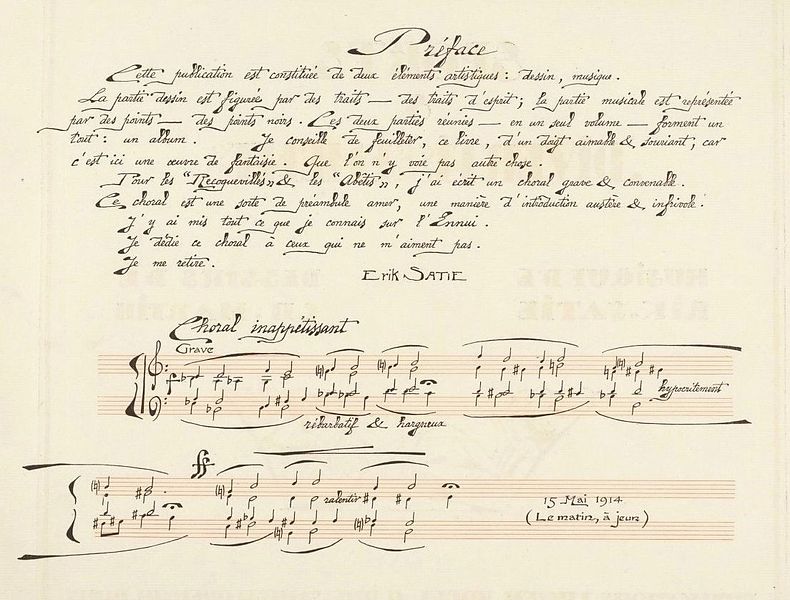 Préface
Cette publication est constituée de deux éléments artistiques : dessin, musique.
La partie dessin est figurée par des traits — des traits d'esprit ; la partie musicale est représentée
par des points — des points noirs. Ces deux parties réunies — en un seul volume — forment un
tout : un album. Je conseille de feuilleter, ce livre, d'un doigt aimable & souriant ; car
c'est ici une œuvre de fantaisie. Que l'on n'y voie pas autre chose.
Pour les "Recroquevillés" & les "Abêtis", j'ai écrit un choral grave & convenable.
Ce choral est une sorte de préambule amer, une manière d'introduction austère & infrivole.
J'y ai mis tout ce que je connais sur l'Ennui.
Je dédie ce choral à ceux qui ne m'aiment pas.
Je me retire.
ERIK SATIE
Choral inappétissant
Grave
f
hypocritement
rébarbatif & hargneux
ff
ralentir
15 Mai 1914
(Le matin, à jeun)